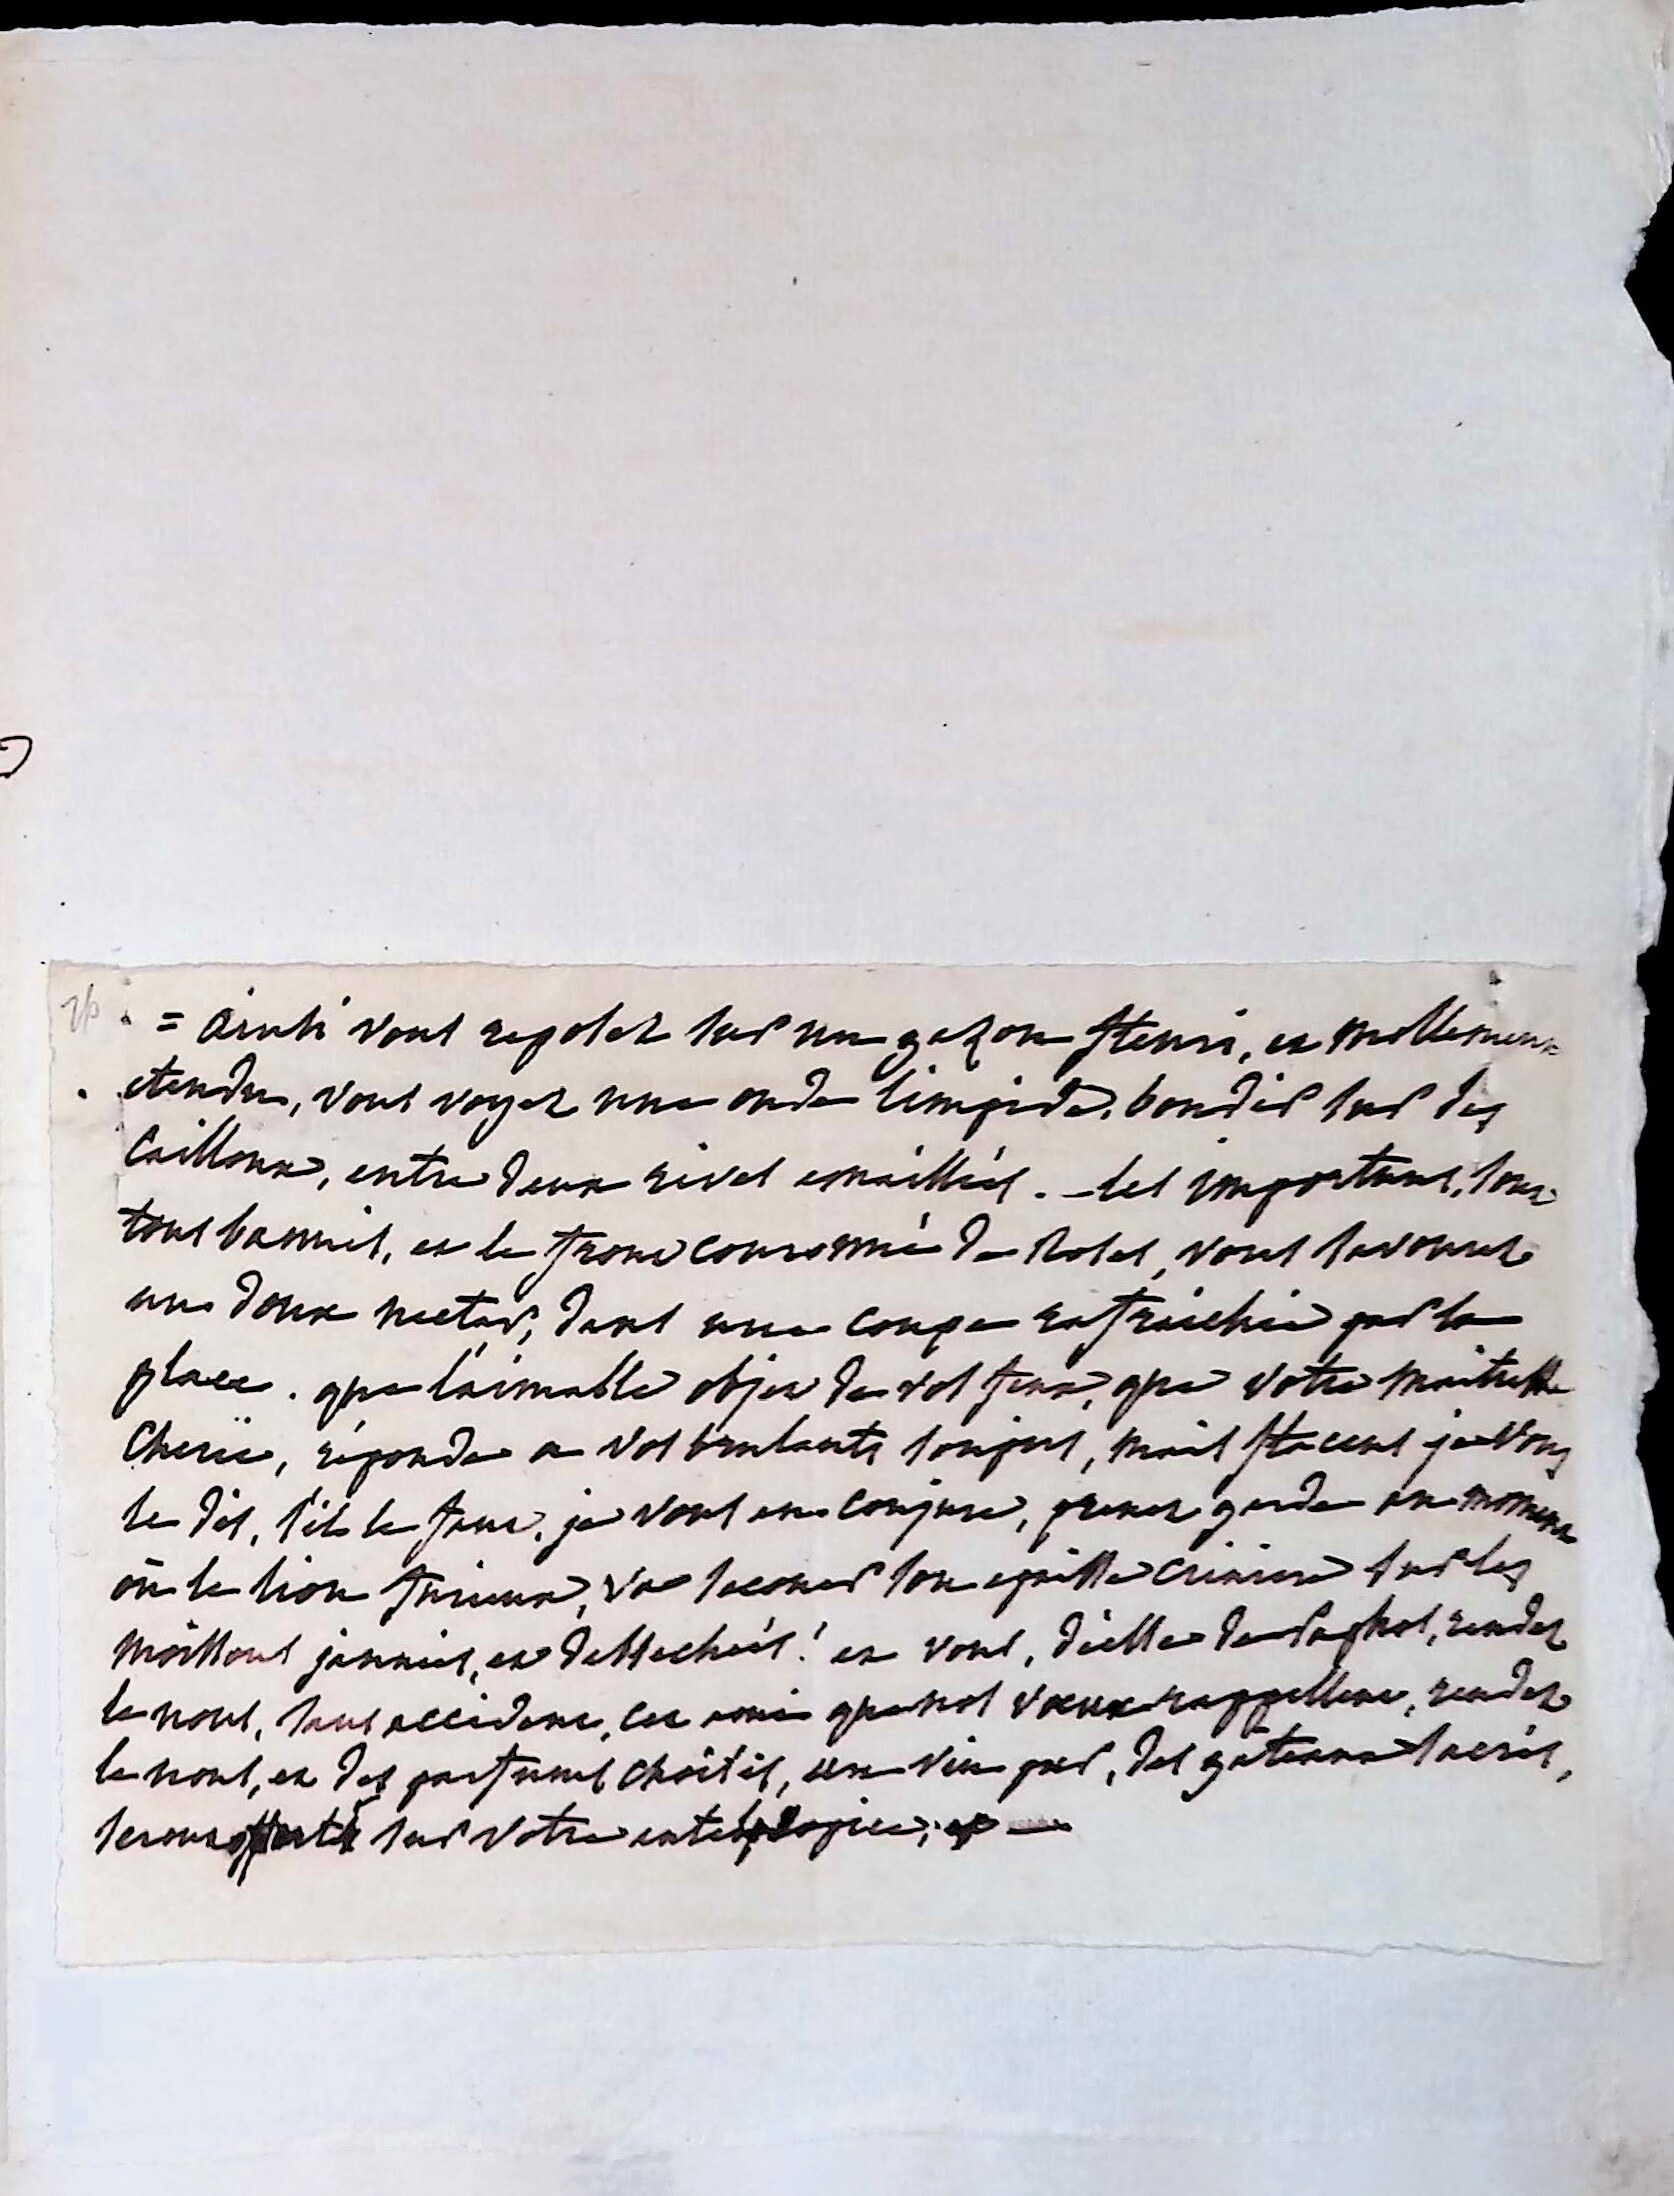 = ainsi vous reposez sur un gazon fleuri, et mollement
etendu, vous voyez une onde limpide, bondir sur des
cailloux, entre deux rives emaillées. - les importuns, sont
tous bannis, et le front couronné de roses, vous savourez
un doux nectar, dans une coupe rafraichie par la
glace. que l'aimable objet de vos feux, que votre maitresse
cherie, réponde a vos brulants soupirs, mais flaccus je vous
le dis, s'il le faut, je vous en conjure, prenez garde au moment
où le lion furieux, va secouer son epaisse criniere sur les
moissons jaunies, et dessechées! et vous, déesse de Paphos, rendez
le nous, sans accident, cet ami que nos voeux rappellent, rendez
le nous, et des parfums choisis, un vin pur, des gâteaux sacrés,
seront offerts sur votre autel